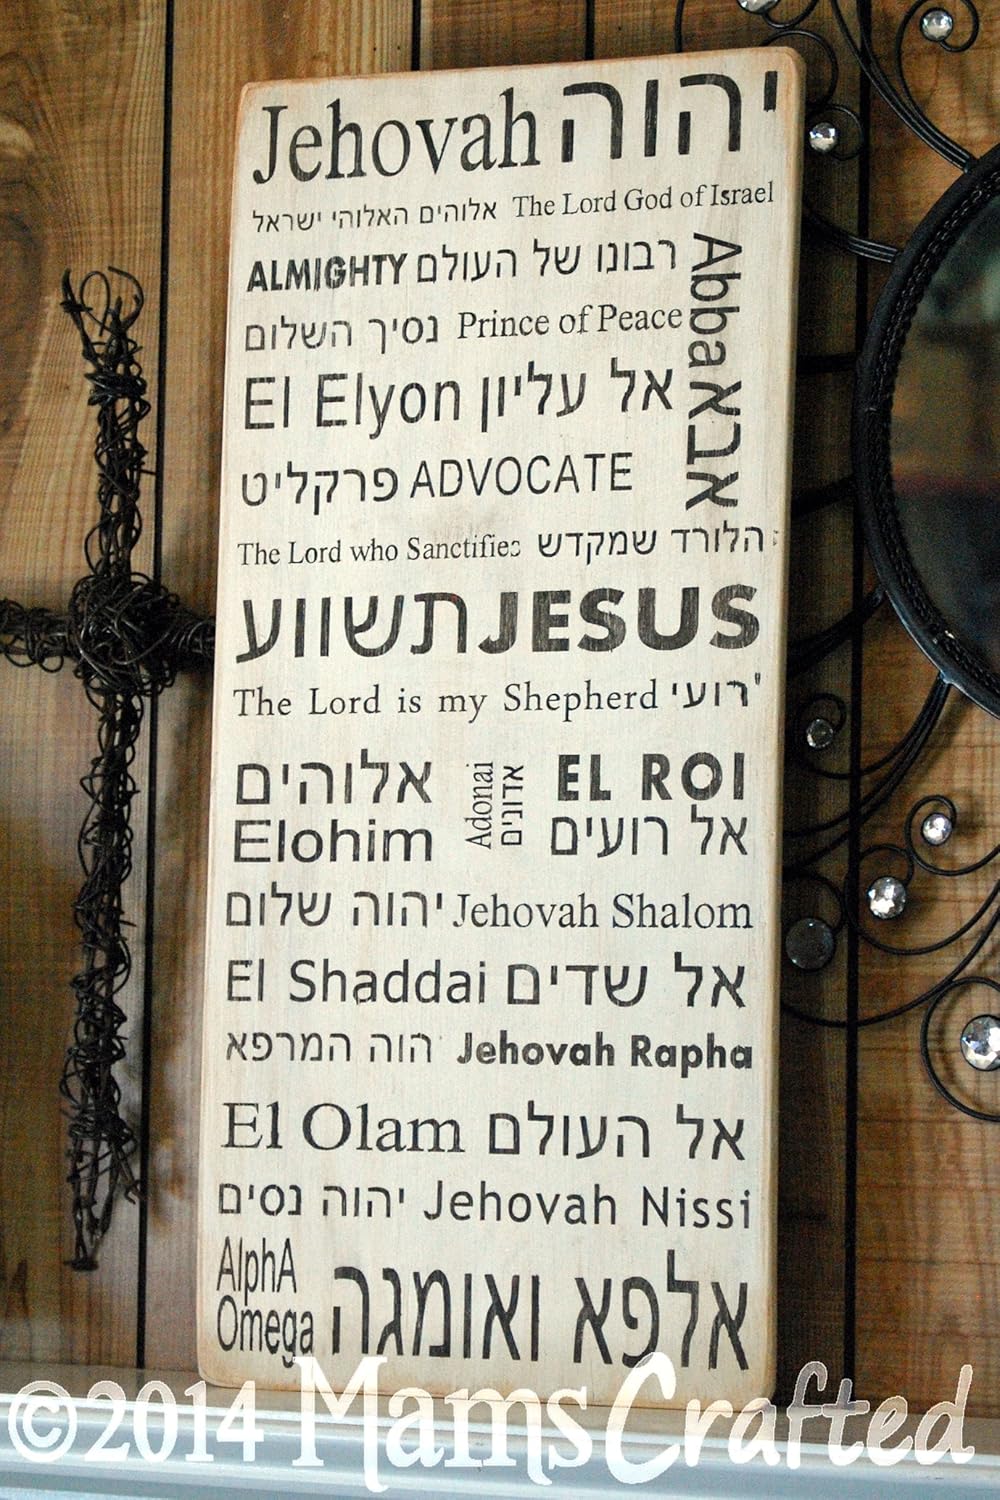 Jehovah יהוה
אלוהים האלוהי ישראל The Lord God of Israel
ALMIGHTY רבונו של העולם
נסיך השלום Prince of Peace
Abba אבא
El Elyon אל עליון
פרקליט ADVOCATE
The Lord who Sanctifies הלורד שמקדש
תשווע JESUS
The Lord is my Shepherd רועי'
אלוהים
Elohim
Adonai
אדונים
EL ROI
אל רועים
יהוה שלום Jehovah Shalom
El Shaddai אל שדים
הוה המרפא Jehovah Rapha
El Olam אל העולם
יהוה נסים Jehovah Nissi
AlphA
Omega
אלפא ואומגה
©2014 MamsCrafted